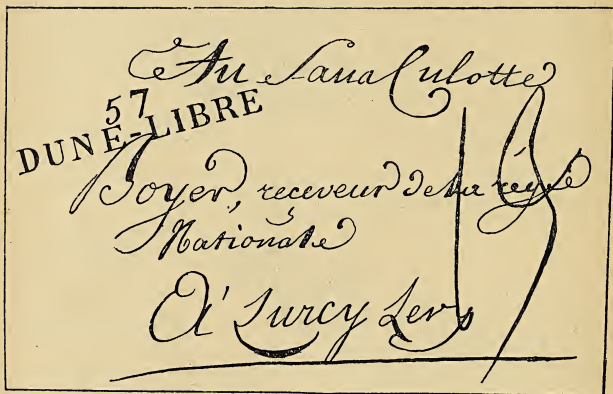 Au Sans Culotte
57
DUNE-LIBRE
Boyer, receveur de la régie
Nationale
A Surcy Levy